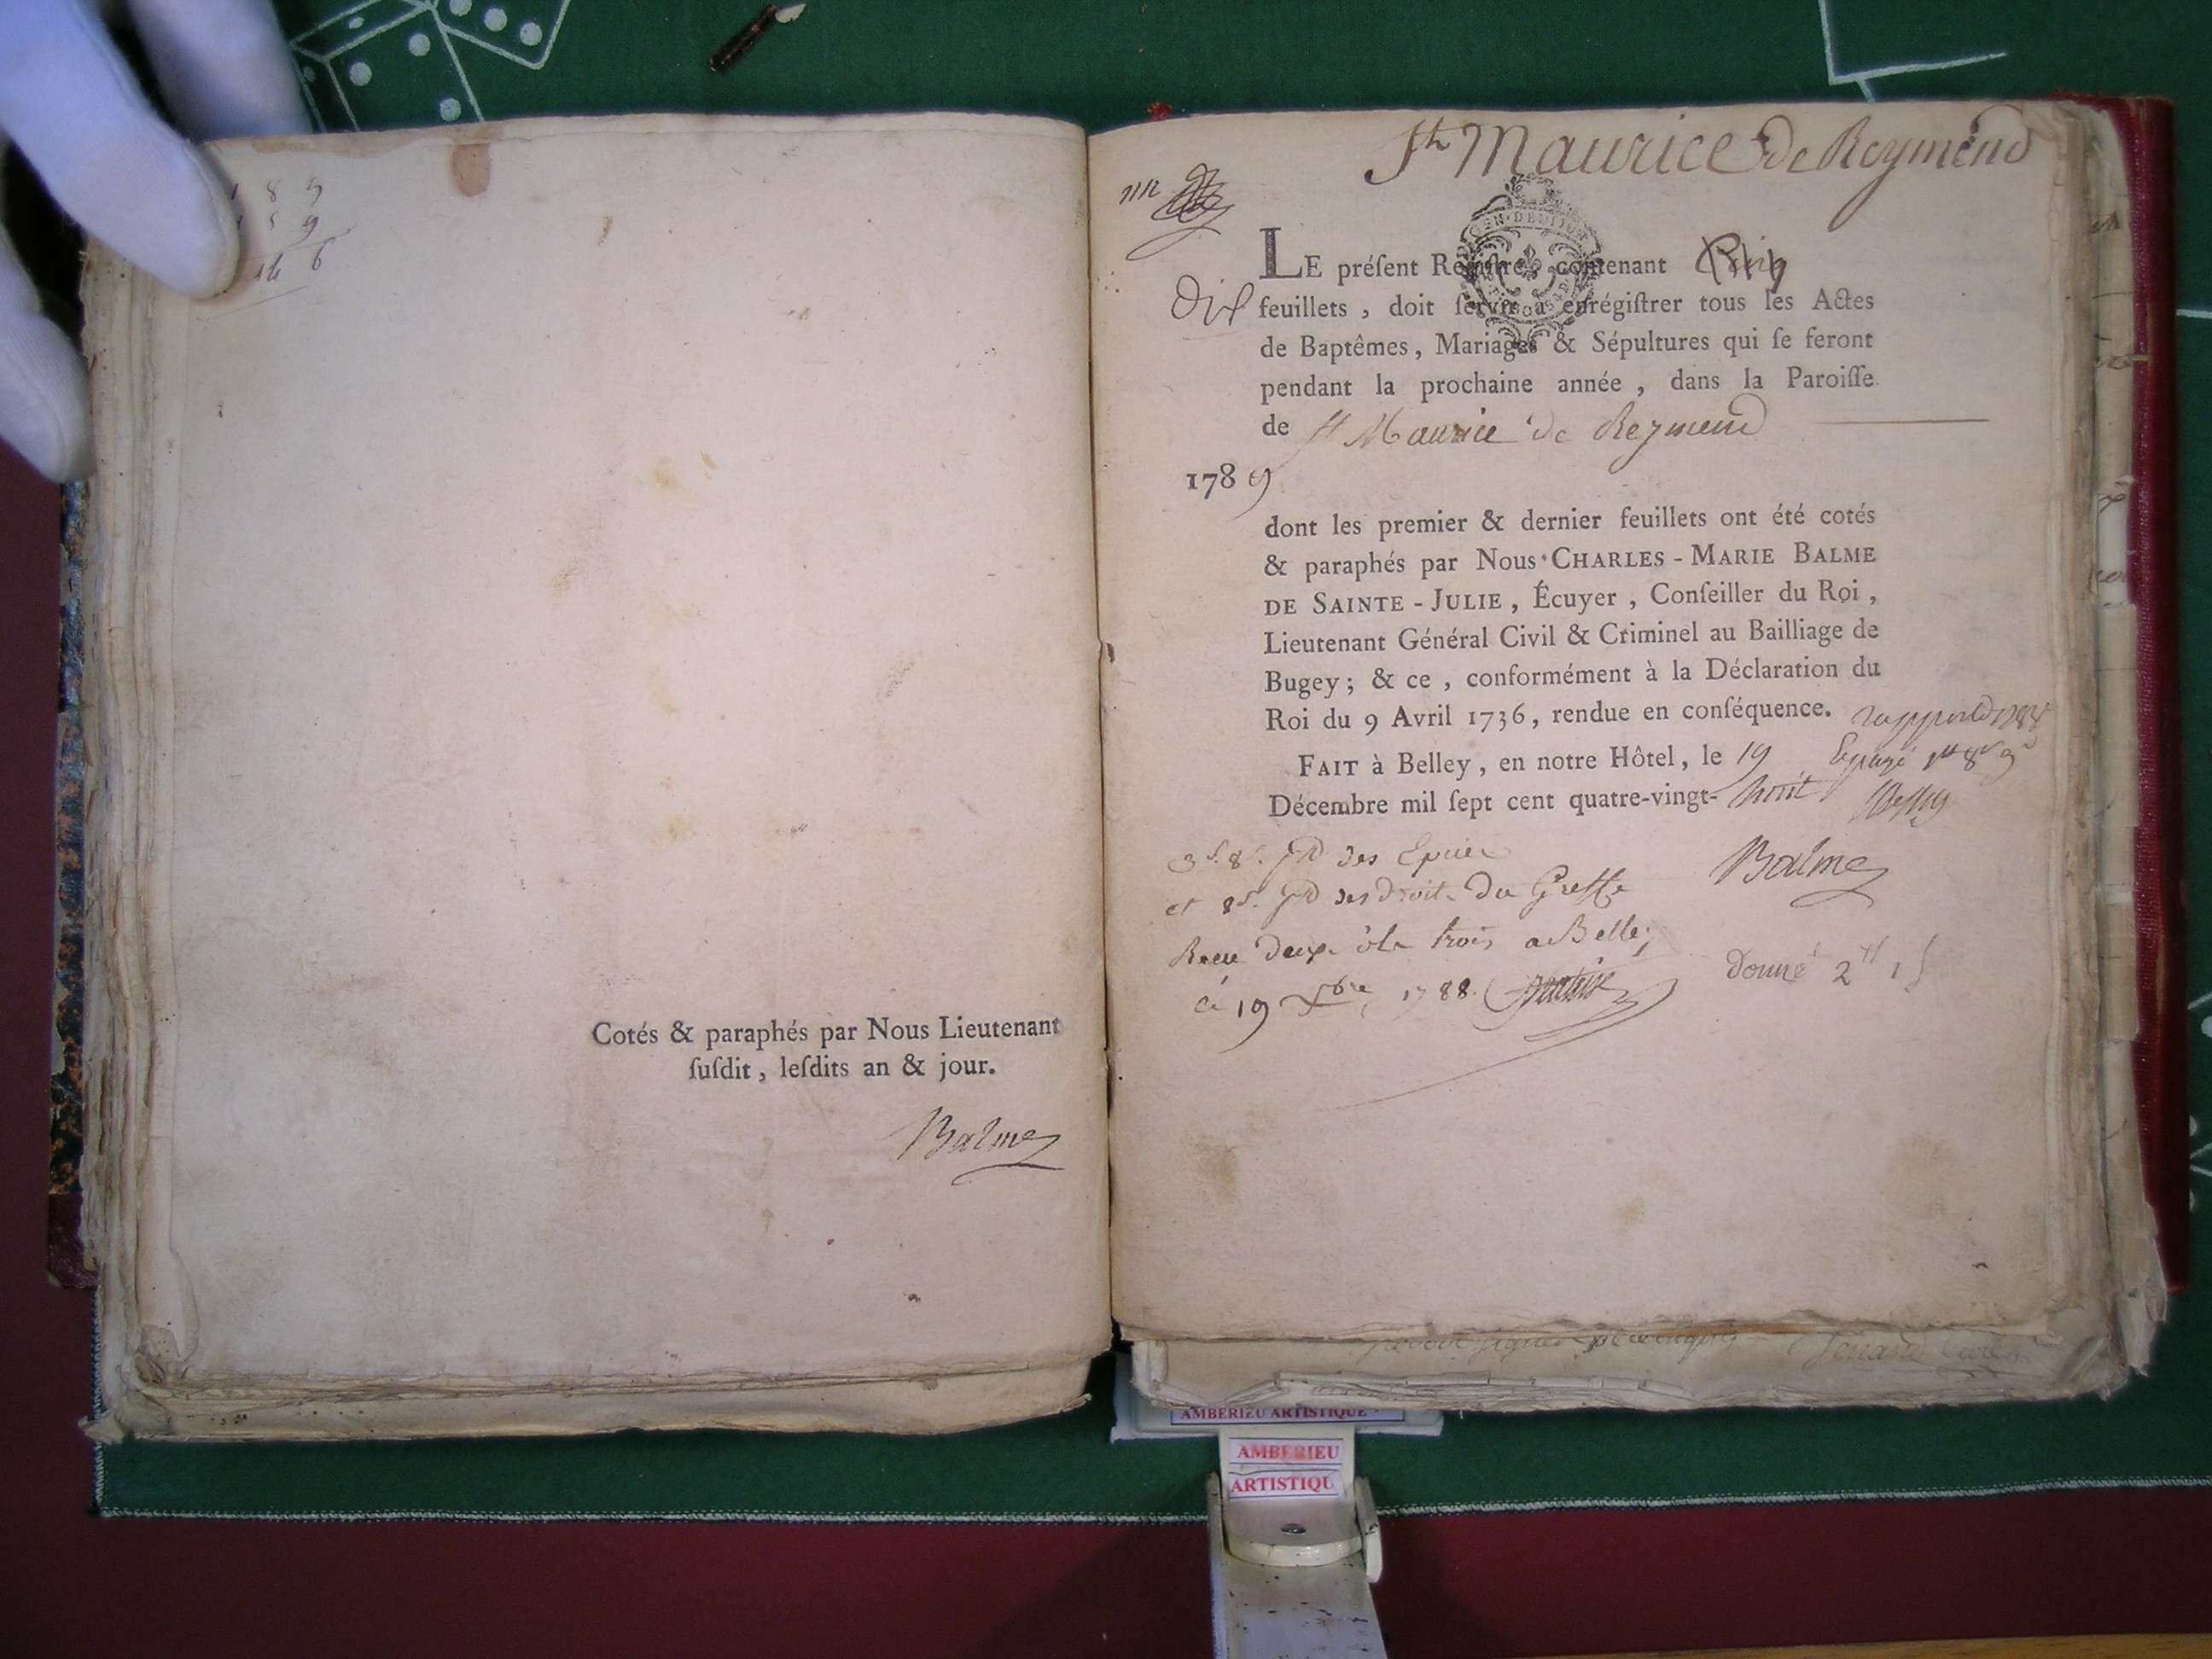 8 9
5 9
6
Cotés & paraphés par Nous Lieutenant
ſuſdit, leſdits an & jour.
Balme
St Maurice de Reymend
LE préſent Regiſtre, contenant
Dix feuillets, doit ſervir à enrégiſtrer tous les Actes
de Baptêmes, Mariages & Sépultures qui ſe feront
pendant la prochaine année, dans la Paroiſſe
de St Maurice de Reymend
1789
dont les premier & dernier feuillets ont été cotés
& paraphés par Nous CHARLES-MARIE BALME
DE SAINTE-JULIE, Écuyer, Conſeiller du Roi,
Lieutenant Général Civil & Criminel au Bailliage de
Bugey; & ce, conformément à la Déclaration du
Roi du 9 Avril 1736, rendue en conſéquence.
FAIT à Belley, en notre Hôtel, le 19
Décembre mil ſept cent quatre-vingt-huit
Balme
3s. 8d. des Epices
et 8s. des droits du Greffe
Receu trois a Belley
Donné 2tt 1s
ce 19 Xbre 1788.
AMBERIEU ARTISTIQUE
AMBERIEU
ARTISTIQU